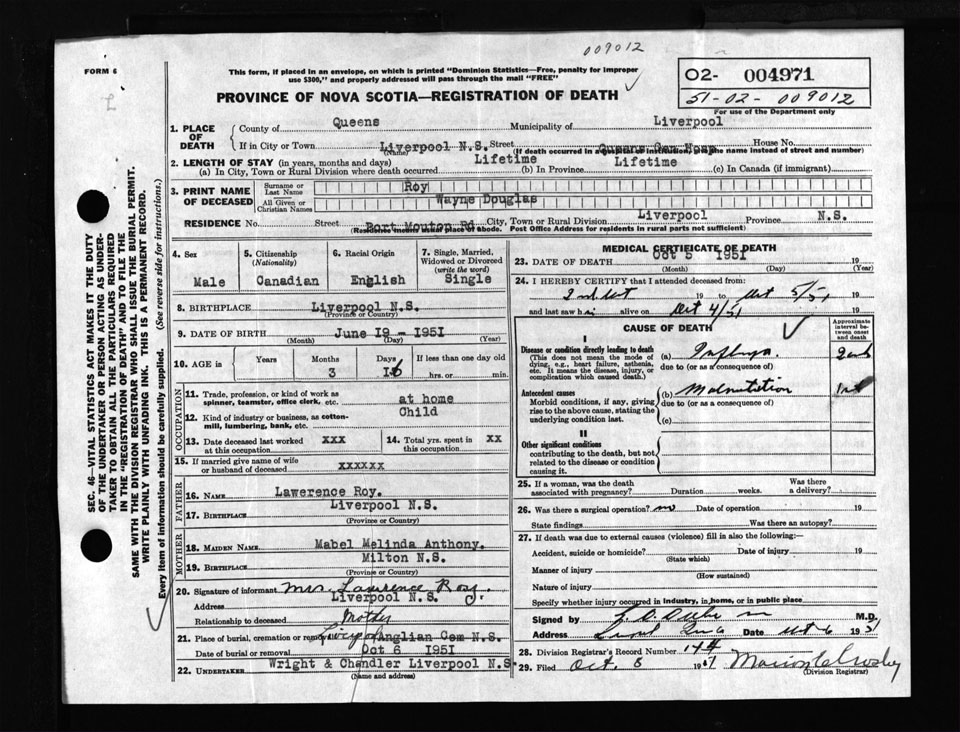 009012
FORM 6
This form, if placed in an envelope, on which is printed "Dominion Statistics—Free, penalty for improper
use $300," and properly addressed will pass through the mail "FREE"
O2- 004971
51-02-009012
For use of the Department only
PROVINCE OF NOVA SCOTIA—REGISTRATION OF DEATH
1. PLACE OF DEATH
County of Queens Municipality of Liverpool
If in City or Town Liverpool N.S. Street House No.
(Name) (If death occurred in a the name instead of street and number)
2. LENGTH OF STAY (in years, months and days) Lifetime Lifetime
(a) In City, Town or Rural Division where death occurred (b) In Province (c) In Canada (if immigrant)
3. PRINT NAME OF DECEASED
Surname or Last Name Roy
All Given or Christian Names Wayne Douglas
RESIDENCE No. Street Port Mouton Rd City, Town or Rural Division Liverpool Province N.S.
(Residence means usual place of abode. Post Office Address for residents in rural parts not sufficient)
4. Sex Male
5. Citizenship (Nationality) Canadian
6. Racial Origin English
7. Single, Married, Widowed or Divorced (write the word) Single
8. BIRTHPLACE Liverpool N.S.
(Province or Country)
9. DATE OF BIRTH June I9 - I95I
(Month) (Day) (Year)
10. AGE in Years Months Days If less than one day old
3 I6 hrs. or min.
OCCUPATION
11. Trade, profession, or kind of work as
spinner, teamster, office clerk, etc. at home
12. Kind of industry or business, as cotton-
mill, lumbering, bank, etc. Child
13. Date deceased last worked
at this occupation xxx
14. Total yrs. spent in
this occupation xx
15. If married give name of wife
or husband of deceased xxxxxx
FATHER
16. NAME Lawerence Roy.
17. BIRTHPLACE Liverpool N.S.
(Province or Country)
MOTHER
18. MAIDEN NAME Mabel Melinda Anthony.
19. BIRTHPLACE Milton N.S.
(Province or Country)
20. Signature of informant Mrs. Lawrence Roy.
Address Liverpool N.S.
Relationship to deceased Mother
21. Place of burial, cremation or removal Liverpool Anglian Cem N.S.
Date of burial or removal Oct 6 I95I
22. UNDERTAKER Wright & Chandler Liverpool N.S.
(Name and address)
MEDICAL CERTIFICATE OF DEATH
23. DATE OF DEATH Oct 5 I95I 19
(Month) (Day) (Year)
24. I HEREBY CERTIFY that I attended deceased from:
19 to Oct 5/51 19
and last saw h alive on Oct 4/51 19
CAUSE OF DEATH
Approximate interval between onset and death
I
Disease or condition directly leading to death
(This does not mean the mode of
dying, e.g., heart failure, asthenia,
etc. It means the disease, injury, or
complication which caused death.)
(a)
due to (or as a consequence of)
Antecedent causes
Morbid conditions, if any, giving
rise to the above cause, stating the
underlying condition last.
(b) Malnutrition
due to (or as a consequence of)
(c)
II
Other significant conditions
contributing to the death, but not
related to the disease or condition
causing it.
25. If a woman, was the death
associated with pregnancy? Duration weeks. Was there
a delivery?
26. Was there a surgical operation? no Date of operation 19
State findings Was there an autopsy?
27. If death was due to external causes (violence) fill in also the following:—
Accident, suicide or homicide? Date of injury 19
(State which)
Manner of injury
(How sustained)
Nature of injury
Specify whether injury occurred in industry, in home, or in public place
Signed by M.D.
Address Date Oct 6 1951
28. Division Registrar's Record Number 144
29. Filed Oct. 8 1951
(Division Registrar)
SEC. 46—VITAL STATISTICS ACT MAKES IT THE DUTY
OF THE UNDERTAKER OR PERSON ACTING AS UNDER-
TAKER TO OBTAIN ALL THE PARTICULARS REQUIRED
IN THE "REGISTRATION OF DEATH" AND TO FILE THE
SAME WITH THE DIVISION REGISTRAR WHO SHALL ISSUE THE BURIAL PERMIT.
WRITE PLAINLY WITH UNFADING INK. THIS IS A PERMANENT RECORD.
Every item of information should be carefully supplied. (See reverse side for instructions.)